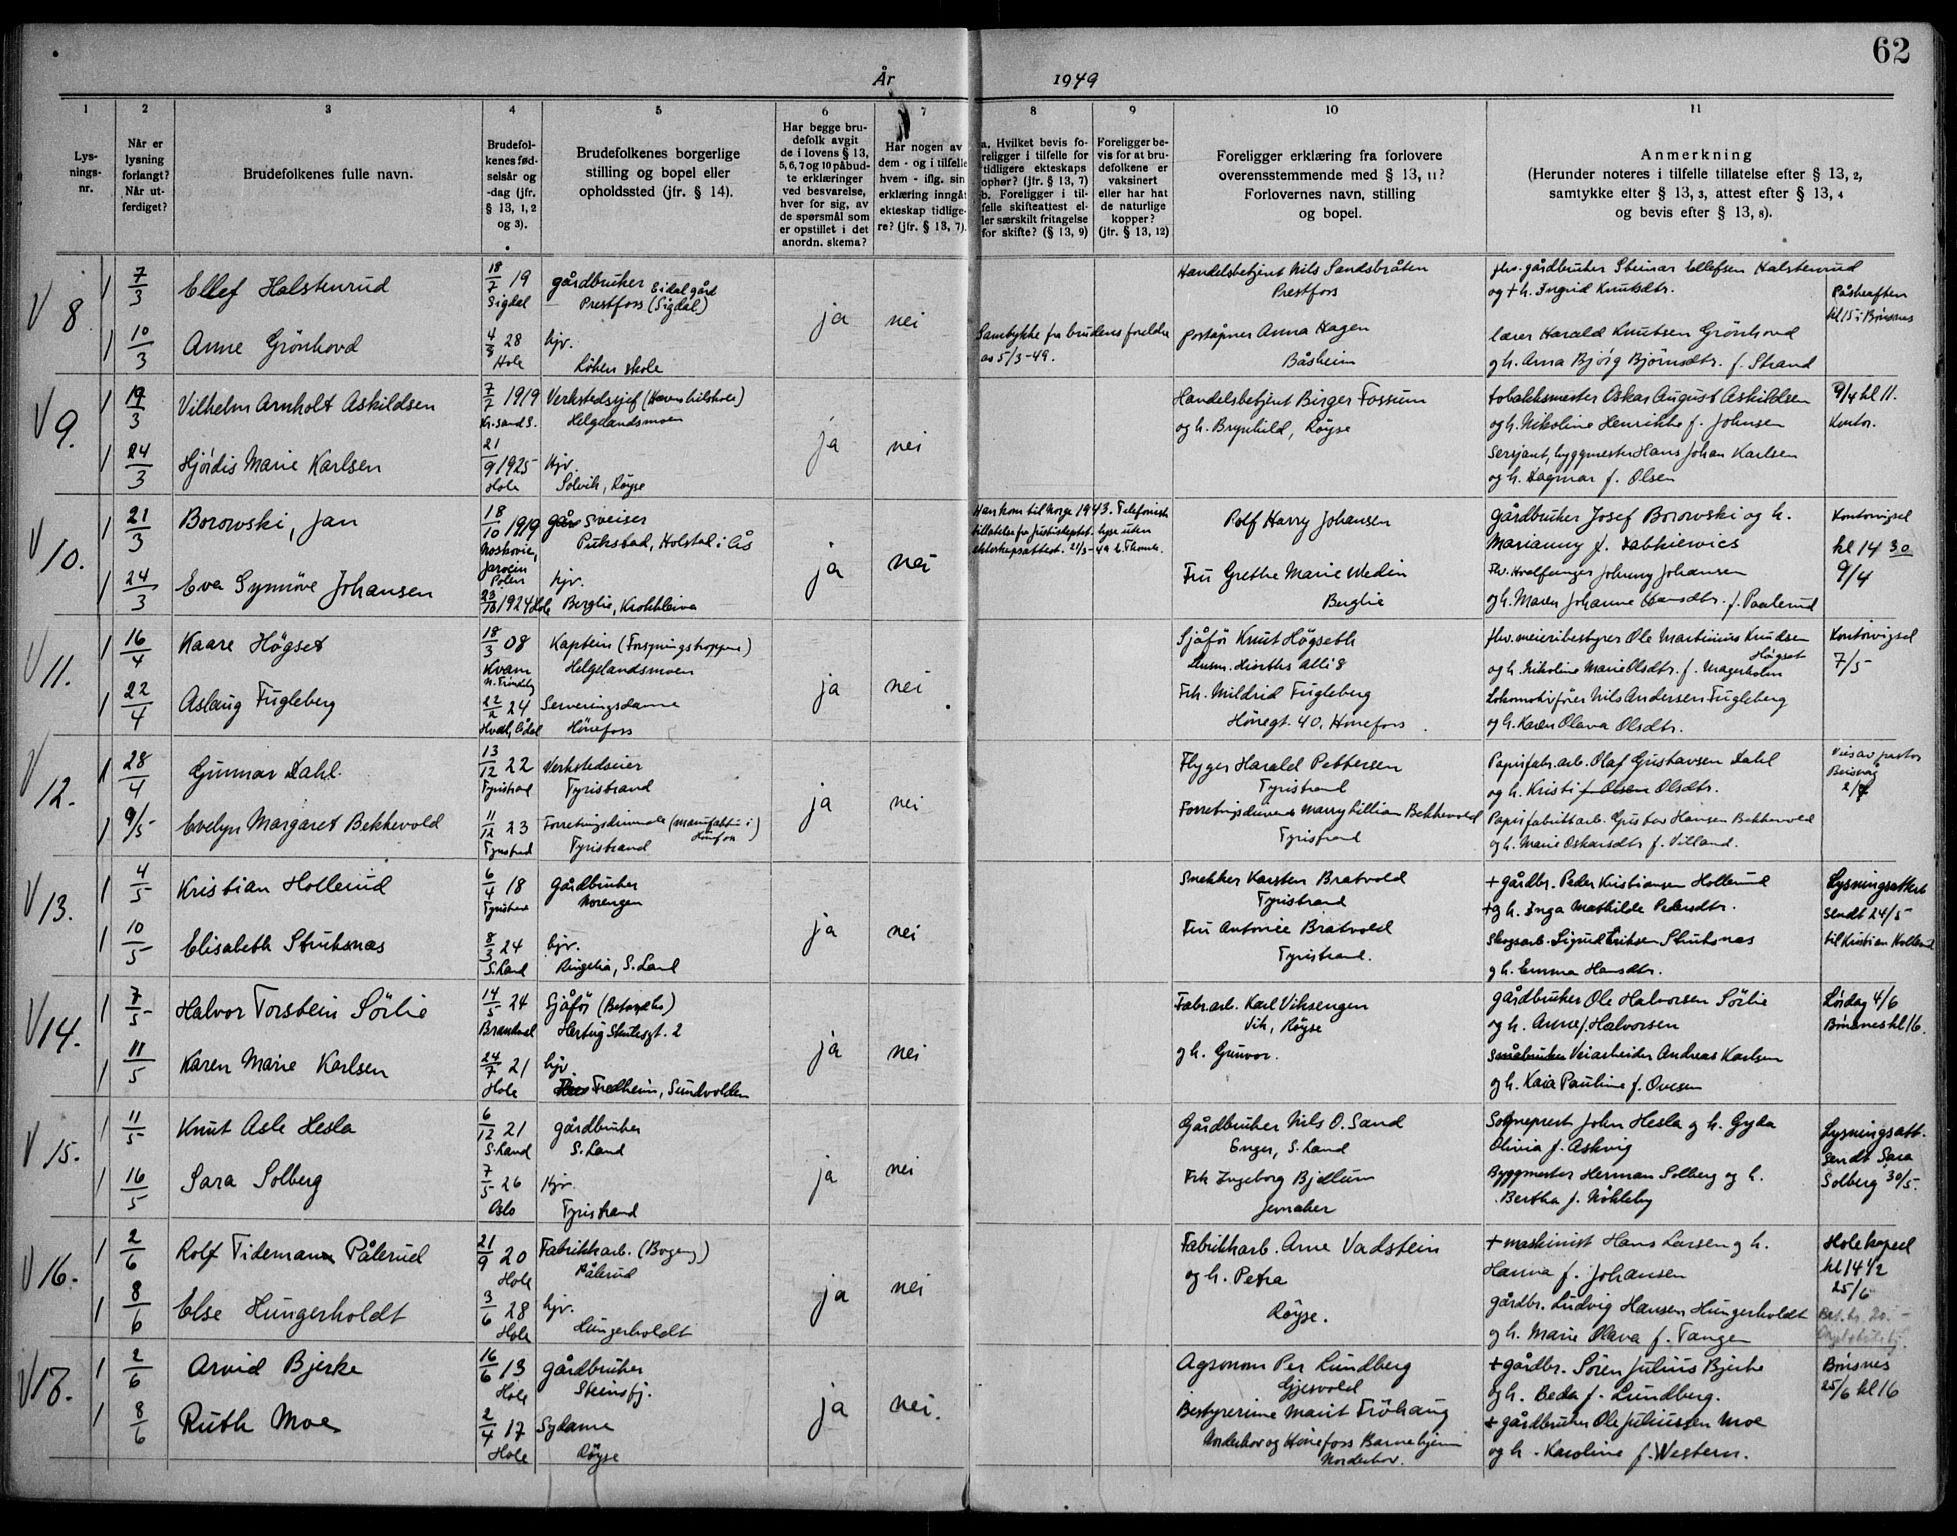 62
År 1949
1
2
3
4
5
6
7
8
9
10
11
Lys-
nings-
nr.
Når er
lysning
forlangt?
Når ut-
ferdiget?
Brudefolkenes fulle navn.
Brudefol-
kenes fød-
selsår og
-dag (jfr.
§ 13, 1, 2
og 3).
Brudefolkenes borgerlige
stilling og bopel eller
opholdssted (jfr. § 14).
Har begge bru-
defolk avgit
de i lovens § 13,
5, 6, 7 og 10 påbud-
te erklæringer
ved besvarelse,
hver for sig, av
de spørsmål som
er opstillet i det
anordn. skema?
Har nogen av
dem - og i tilfelle
hvem - iflg. sin
erklæring inngåt
ekteskap tidlige-
re? (jfr. § 13, 7).
a. Hvilket bevis fo-
religger i tilfelle for
tidligere ekteskaps
ophør? (jfr. § 13, 7)
b. Foreligger i til-
felle skifteattest el-
ler særskilt fritagelse
for skifte? (§ 13, 9)
Foreligger be-
vis for at bru-
defolkene er
vaksinert
eller har hat
de naturlige
kopper?
(jfr. § 13, 12)
Foreligger erklæring fra forlovere
overensstemmende med § 13, 11?
Forlovernes navn, stilling
og bopel.
Anmerkning
(Herunder noteres i tilfelle tillatelse efter § 13, 2,
samtykke efter § 13, 3, attest efter § 13, 4
og bevis efter § 13, 8).
V 8
7/3
Ellef Halstenrud
18/7 19
Sigdal
gårdbruker Eidal gård
Prestfoss (Sigdal)
ja
nei
Handelsbetjent Nils Sandsbråten
Prestfoss
fhv. gårdbruker Steinar Ellefsen Halstenrud
og + h. Ingrid Knutsdtr.
Påskeaften
kl 15 i Bönsnes
10/3
Anne Grönhovd
4/3 28
Hole
hjv.
Löken skole
Samtykke fra brudens foreldre
av 5/3-49.
poståpner Anna Hagen
Båsheim
lærer Harald Knutsen Grönhovd
og h. Anna Bjórg Björnsdtr. f. Strand
V 9.
19/3
Vilhelm Arnholt Askildsen
7/7 1919
Kr.sand S.
Verkstedsjef (Hærens bilskole)
Helgelandsmoen
ja
nei
Handelsbetjent Birger Fossum
og h. Brynhild, Röyse
tobakksmester Oskar August Askildsen
og h. Nikoline Henrikke f. Johnsen
9/4 kl 11.
Kontor.
24/3
Hjördis Marie Karlsen
21/9 1925
Hole
hjv.
Solvik, Röyse
Sersjant, byggmester Hans Johan Karlsen
og h. Dagmar f. Olsen
V 10.
21/3
Borowski, Jan
18/10 1919
Jarocin
Polen
Sveiser
Pukstad, Holstad i Ås
ja
nei
Han kom til Norge 1943. Telefonisk
tillatelse fra Justisdeptet. lyse uten
ekteskapsattest. 21/3-49
Rolf Harry Johansen
gårdbruker Josef Borowski og h.
Marianny f. Dabkiewics
Kontorvigsel
kl 14 30
9/4
24/3
Eva Synnöve Johansen
23/10 1924 Hole
hjv.
Berglie, Krokkleiva
Fru Grethe Marie Wedin
Berglie
Fhv. Hvalfanger Johnny Johansen
og h. Maren Johanne Hansdtr. f. Paalerud
V 11.
16/4
Kaare Högset
18/3 08
Kvam
N. Tröndelg
Kaptein (Forsyningstroppene)
Helgelandsmoen
ja
nei
Sjåför Knut Högseth
Hiorths allé 8
fhv. meieribestyrer Ole Martinius Knudsen
Högset
og h. Nikoline Marie Olsdtr. f. Magerholm
Kontorvigsel
7/5
22/4
Aslaug Fugleberg
22/2 24
Hval, Ådal
Serveringsdame
Hönefoss
Frk. Mildrid Fugleberg
Hönegt. 40, Hönefoss
Lokomotivförer Nils Andersen Fugleberg
og h. Karen Olava Olsdtr.
V 12.
28/4
Gunnar Dahl.
13/12 22
Tyristrand
Verkstedseier
Tyristrand
ja
nei
Flyger Harald Pettersen
Tyristrand
Papirfabr.arb. Olaf Gustavsen Dahl
og h. Kristi f. Olsen Olsdtr.
Vies av pastor
2/7
9/5
Evelyn Margaret Bekkevold
11/12 23
Tyristrand
Forretningsdrivende (manufaktur i
Hönefoss)
Tyristrand
Forretningsdrivende Marry Lillian Bekkevold
Tyristrand
Papirfabrikkarb. Gustav Hansen Bekkevold
og h. Marie Oskarsdtr f. Villand.
V 13.
4/5
Kristian Hollerud
6/4 18
Tyristrand
gårdbruker
Morengen
ja
nei
Snekker Karsten Bratvold
Tyristrand
+ gårdbr. Peder Kristiansen Hollerud
+ og h. Inga Mathilde Pedersdtr.
Lysningsattest
sendt 24/5
til Kristian Hollerud
10/5
Elisabeth Stuksnas
8/3 24
S. Land
hjv.
Ringelia, S. Land
Fru Antonie Bratvold
Tyristrand.
Skogsarb. Sigurd Eriksen Stuksnas
og h. Emma Hansdtr.
V 14.
7/5
Halvor Torstein Sörlie
14/5 24
Brandval
Sjåför
Hertug Skulesgt. 2
ja
nei
Fabr.arb. Karl Viksengen
Vik, Röyse
og h. Gunvor.
gårdbruker Ole Halvorsen Sörlie
og h. Anne f. Halvorsen
Lördag 4/6
Bönsnes kl 16.
11/5
Karen Marie Karlsen
24/7 21
Hole
hjv.
Fredheim, Sundvolden
Småbruker Veiarbeider Andreas Karlsen
og h. Kaia Pauline f. Ovesen
V 15.
11/5
Knut Asle Hesla
6/12 21
S. Land
gårdbruker
S. Land
ja
nei
Gårdbruker Nils O. Sand
Enger, S. Land
Sogneprest John Hesla og h. Gyda
Olivia f. Askvig
Lysningsatt.
sendt Sara
Solberg 30/5.
16/5
Sara Solberg
7/5 26
Oslo
hjv.
Tyristrand
Frk Ingeborg Bjellum
Jevnaker
Byggmester Herman Solberg og h.
Bertha f. Nökleby
V 16.
2/6
Rolf Tidemann Pålerud
21/9 20
Hole
Fabrikkarb.
Pålerud
ja
nei
Fabrikkarb. Arne Vadstein
og h. Petra
Röyse.
+ maskinist Hans Larsen og h.
Hanna f. Johansen
Hole kapell
kl 14 1/2
25/6
8/6
Else Hungerholdt
3/6 28
Hole
hjv.
Hungerholdt
gårdbr. Ludvig Hansen Hungerholdt
og h. Marie Olava f. Tangen
V 17.
2/6
Arvid Bjerke
16/6 13
Hole
gårdbruker
Steinsfj.
ja
nei.
Agronom Per Lundberg
Gjesvold
+ gårdbr. Sören Julius Bjerke
og h. Beda f. Lundberg.
Bönsnes
25/6 kl 16
8/6
Ruth Moe
2/4 17
Hole
Sydame
Röyse
Bestyrerinne Marit Fröhaug
Norderhov og Hönefoss Barnehjem
Norderhov.
+ gårdbruker Ole Juliussen Moe
og h. Karoline f. Western.